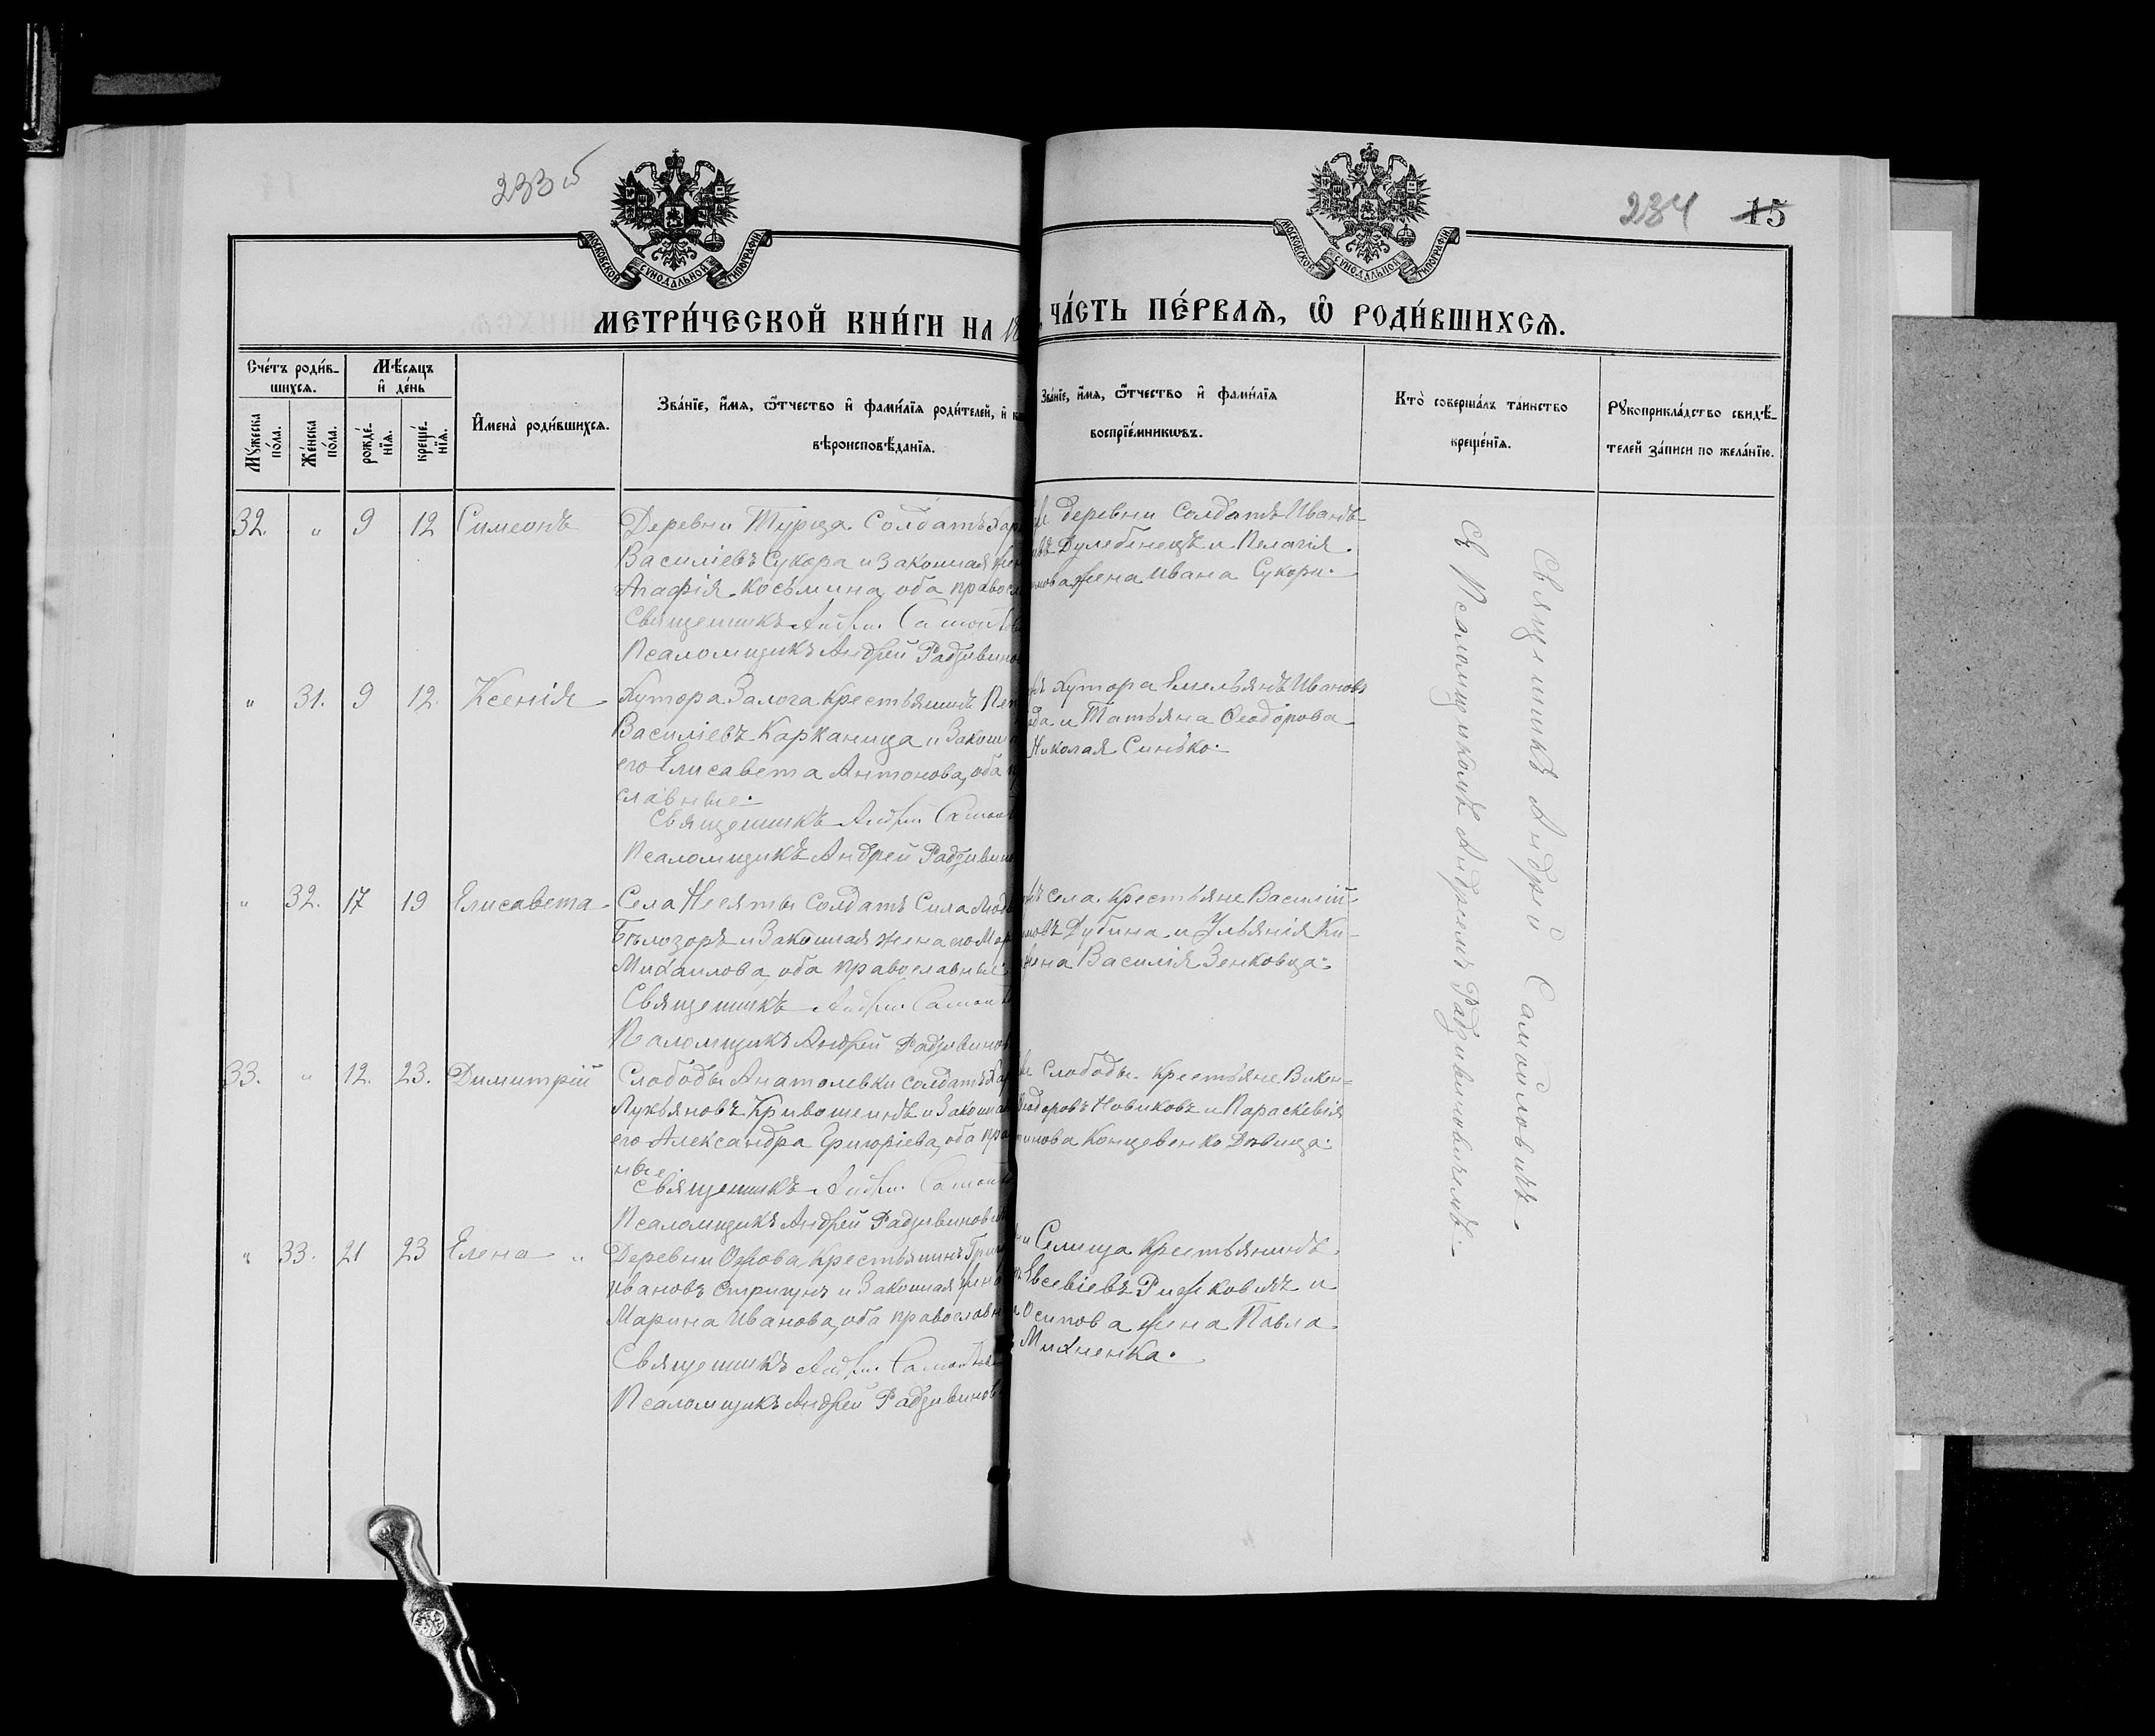 233 об
284 15
МОСКОВСКОЙ СѴНОДАЛЬНОЙ ТИПОГРАФІИ
МОСКОВСКОЙ СѴНОДАЛЬНОЙ ТИПОГРАФІИ
МЕТРИ́ЧЕСКОЙ КНИ́ГИ НА 18
ЧА́СТЬ ПЕ́РВАѦ, Ѽ РОДИ́ВШИХСѦ.
Сче́тъ роди́в-
шихсѧ.
Мѣ́сѧцъ
и҆ де́нь
Мꙋ́жеска по́ла.
Же́нска по́ла.
рожде́-
нїѧ.
креще́-
нїѧ.
И҆мена̀ роди́вшихсѧ.
Зва́нїе, и҆́мѧ, ѻ҆́тчество и҆ фами́лїѧ роди́телей, и҆
вѣроисповѣ́данїѧ.
Зва́нїе, и҆́мѧ, ѻ҆́тчество и҆ фами́лїѧ
воспрїе́мникѡвъ.
Кто̀ соверша́лъ та́инство
креще́нїѧ.
Рꙋкоприкла́дство свидѣ́-
телей за́писи по жела́нїю.
32. " 9 12 Симеонъ
Деревни Турца. Солдатъ Хар
Василіевъ Сукора и Законная жен
Агафія Косьмина, оба правосл
Священникъ Андрей Самойлов
Псаломщикъ Андрей Радзивинов
деревни Солдатъ Иванъ
Дулебенецъ и Пелагія
жена Ивана Сукоры.
" 31. 9 12. Ксенія
Хутора Залога Крестьянинъ Пет
Василіевъ Карканица и Законна
его Елисавета Антонова, оба п
славные.
Священникъ Андрей Самойл
Псаломщикъ Андрей Радзивино
Хутора Емельянъ Ивановъ
и Татьяна Ѳеодорова
Николая Синько.
" 32. 17 19 Елисавета
Села Несяты Солдатъ Сила
Бѣлозоръ и Законная жена его Мар
Михаилова, оба православные.
Священникъ Андрей Самойл
Псаломщикъ Андрей Радзивинов
села. Крестьяне Василій
Дубина и Ульянія Ки-
жена Василія Зенковца.
33. " 12. 23. Димитрій
Слободы Анатолевки солдатъ Хар
Лукьяновъ Кривошеинъ и Законна
его Александра Григоріева, оба пра
ные.
Священникъ Андрей Самойл
Псаломщикъ Андрей Радзивинови
Слободы. Крестьяне Викен-
Ѳеодоровъ Новиковъ и Параскевія
Концевенко Дѣвица.
" 33. 21 23 Елена "
Деревни Орлова Крестьянинъ Григ
Ивановъ Стригунъ и Законная жена
Марина Иванова, оба православн
Священникъ Андрей Самойлов
Псаломщикъ Андрей Радзивинов
Селища Крестьянинъ
Евсевіевъ Рижковичъ и
Осипова жена Павла
Михненка.
Священникъ Андрей Самойловичъ
Съ Псаломщикомъ Андреемъ Радзивиновичемъ.